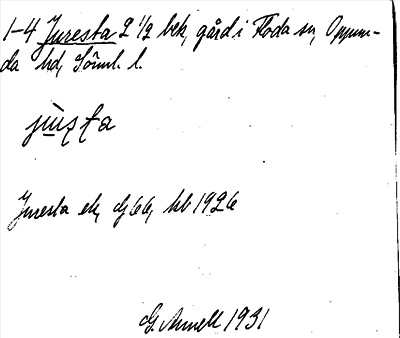 1-4 Juresta 2 1/2 bek, gård i Floda sn, Oppun-
da hd, Söml. l.
Juresta ek, Gj 66, hb 1926
G. Annell 1931